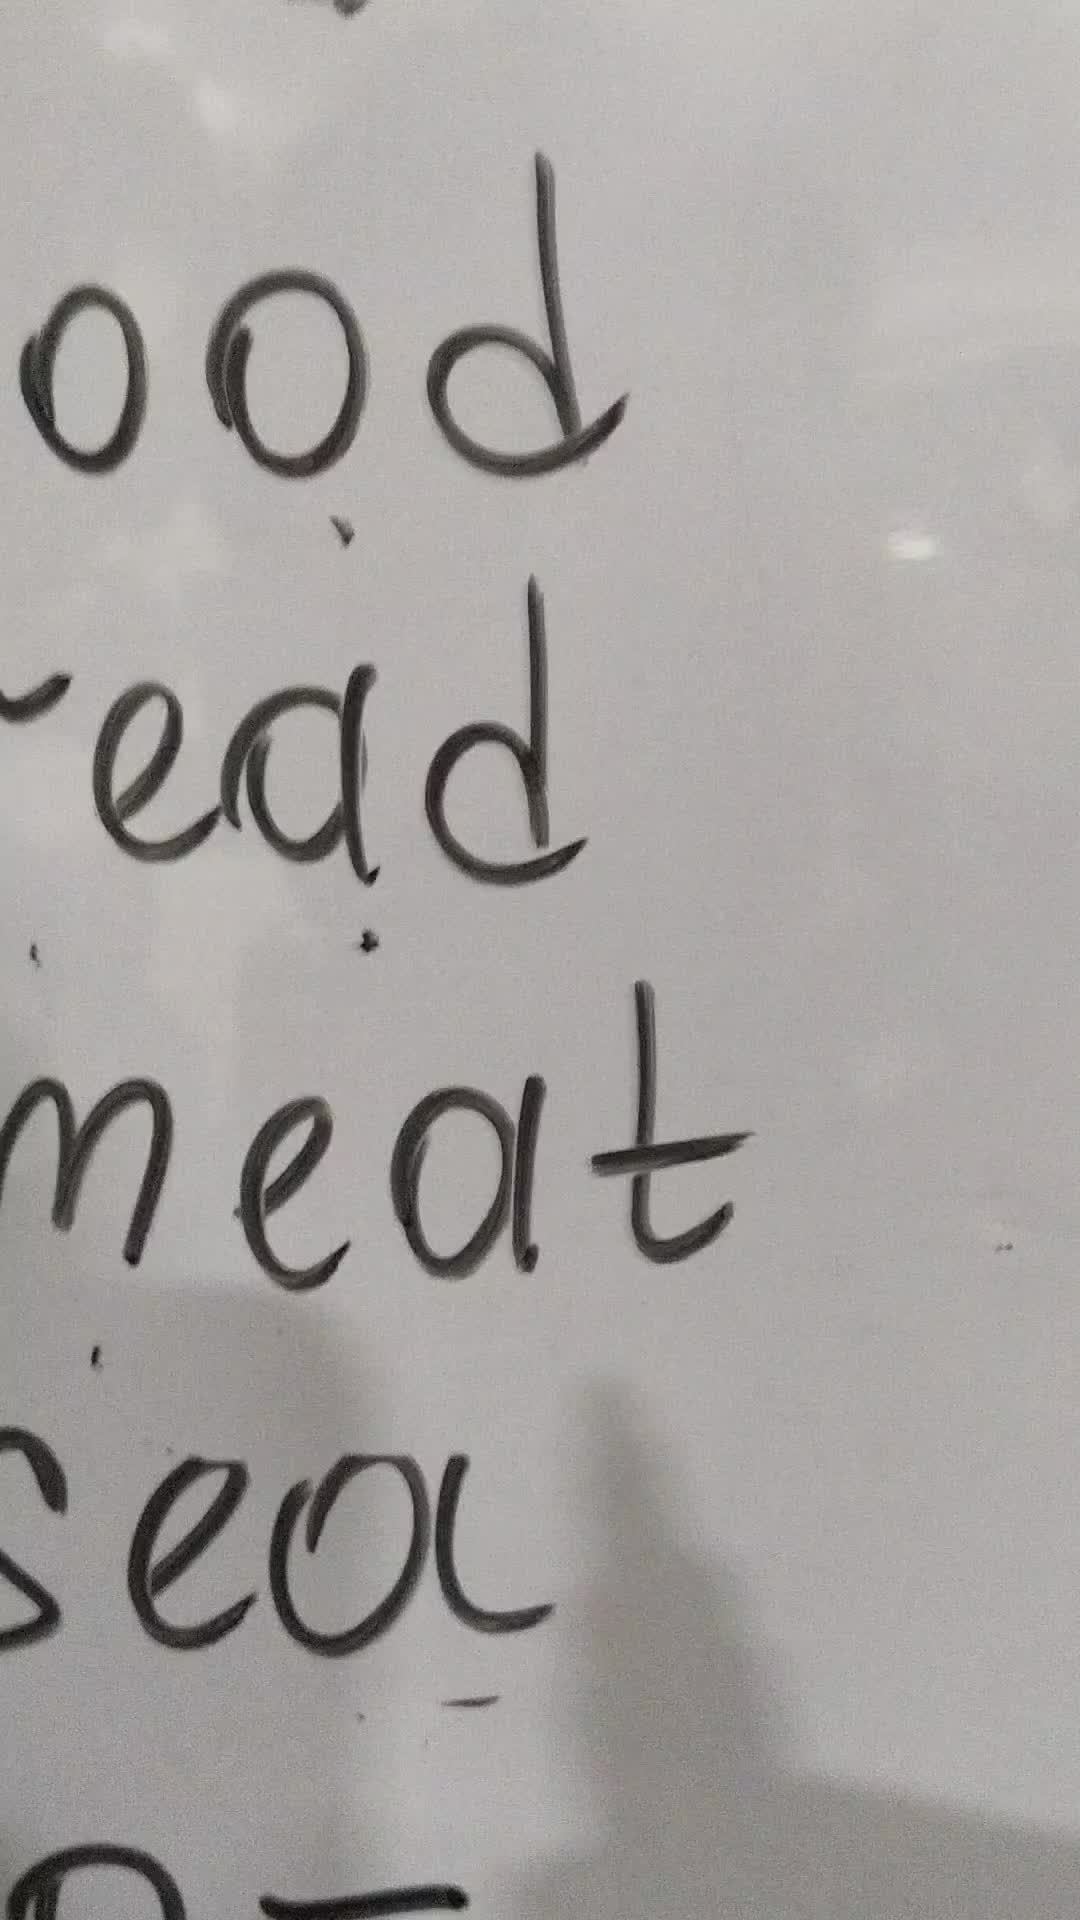 ood
read
meat
sea